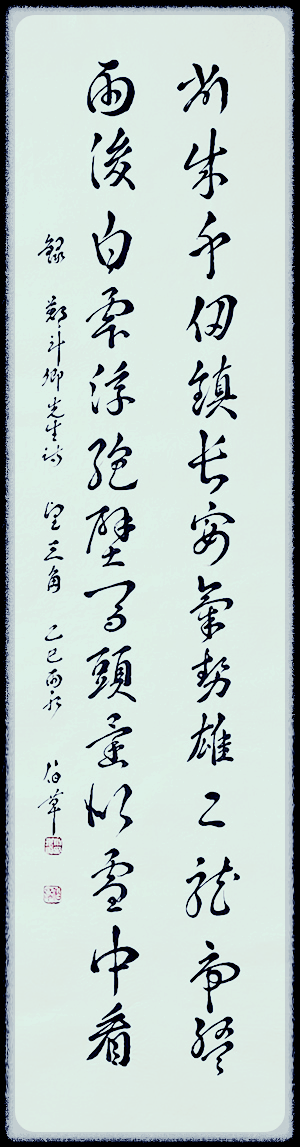 削成千仞鎮長安氣勢雄龍
雨後白雲浮絕壁頭似雪中看
錄 鄭斗卿先生詩 望三角 乙巳雨水 草